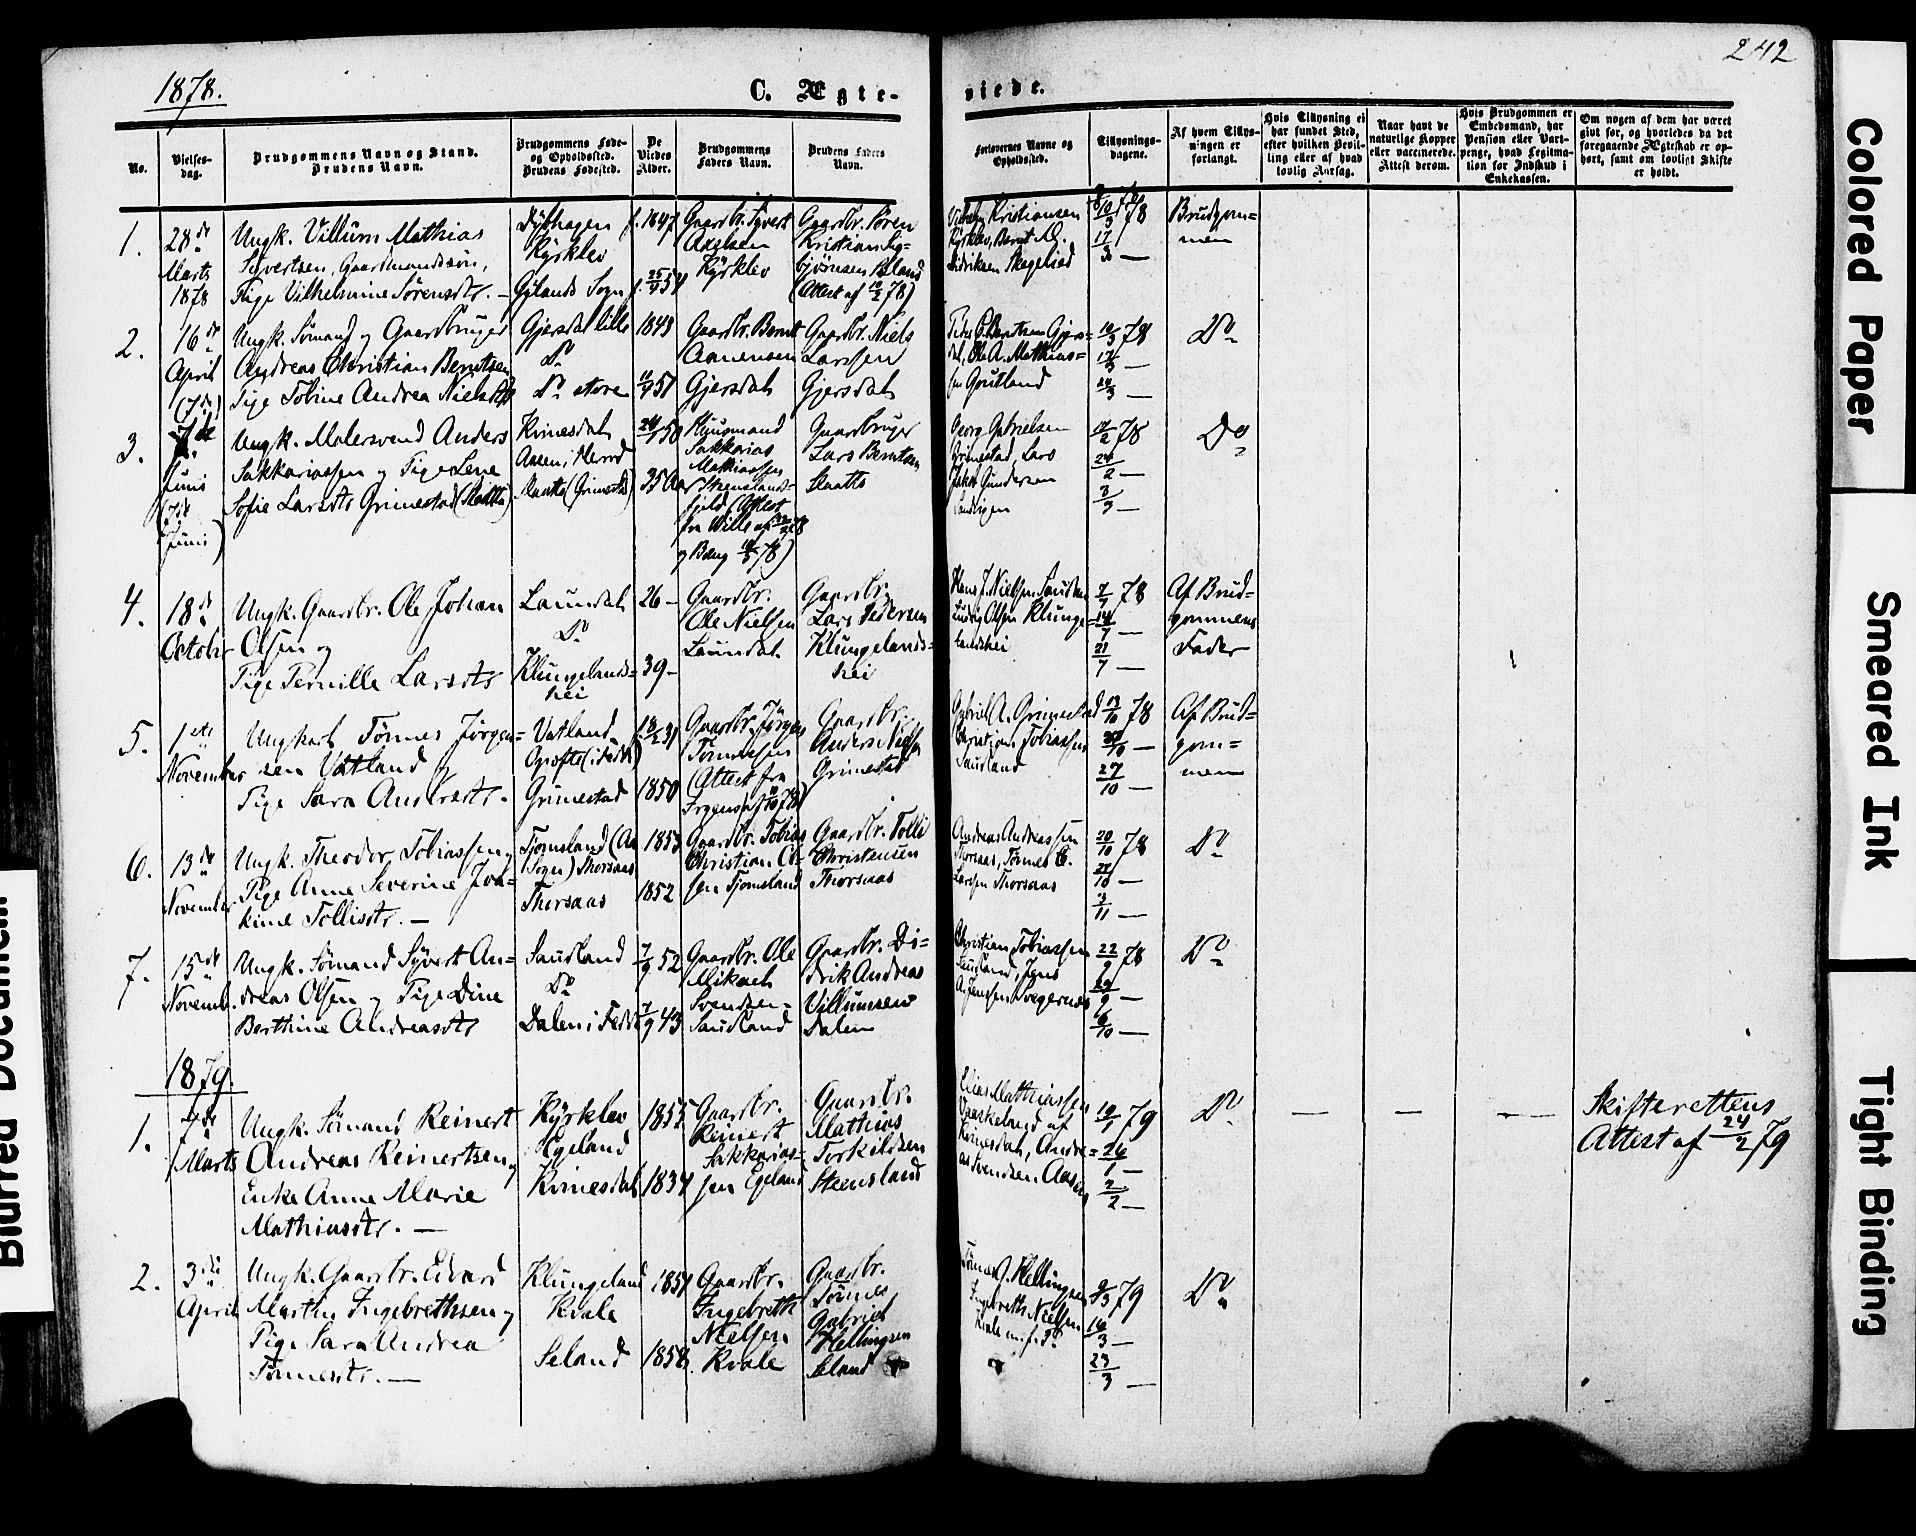 1878.
C. Ægte-
viede.
242
No.
Vielses-
dag.
Brudgommens Navn og Stand.
Brudens Navn.
Brudgommens Føde-
og Opholdssted.
Brudens Fødested.
De
Viedes
Alder.
Brudgommens
Faders Navn.
Brudens Faders
Navn.
Forlovernes Navne og
Opholdssted.
Tillysnings-
dagene.
Af hvem Tillys-
ningen er
forlangt.
Hvis Tillysning ei
har fundet Sted,
efter hvilken Bevil-
ling eller af hvad
lovlig Aarsag.
Naar havt de
naturlige Kopper
eller vaccinerede.
Attest derom.
Hvis Brudgommen er
Embedsmand, har
Pension eller Vart-
penge, hvad Legitima-
tion for Indskud i
Enkekassen.
Om nogen af dem har været
gift før, og hvorledes da det
foregaaende Ægteskab er op-
hørt, samt om lovligt Skifte
er holdt.
1.
28de
Marts
1878
Ungk. Villum Mathias
Sivertsen, Gaardmandssøn,
Pige Vilhelmine Sørensdtr. –
Kyrklev
Gylands Sogn
f. 1847
f. 25/7 54
Gaardbr. Syvert
Axelsen
Kyrklev
Gaardbr. Søren
(Attest af 10/2 78)
Kristiansen
Kyrklev, Bernt
10/3 78
17/3 —
Brudgom-
men
2.
16de
April
Ungk. Sømand og Gaardbruger
Andreas Christian Berntsen
Pige Tobine Andrea Nielsdtr
Gjersdal lille
Do
Do store
1843
51
Gaardbr. Bernt
Aanensen
Gjersdal
Gaardbr. Niels
Larssen
Gjersdal
10/3 78
17/3 —
24/3 —
Do
3.
7de
Juni
(7de
Juni)
Ungk. Malersvend Anders
Sakkariassen og Pige Lene
Sofie Larsdtr Grimestad (Slaatte)
Kvinesdal
50
35 Aar
Huusmand
Sakkarias
Mathiassen
Gaardbruger
Lars Berntsen
Slaatte
Georg Gabrielsen
Grimestad, Lars
Jakob Gundersen
17/2 78
24/2 —
3/3 —
Do
4.
18de
Octobr
Ungk. Gaardbr. Ole Johan
Olsen og
Pige Pernille Larsdtr
Laundal
Do
Klungelands-
hei
26 –
39 –
Gaardbr.
Ole Nielsen
Laundal.
Gaardbr.
Lars Pedersen
Klungelands-
hei
Hans J. Nielsen
Ludvig Olsen Klunge-
landshei
7/7 78
14/7 —
21/7 —
Af Brud-
gommens
Fader
5.
1ste
November
Ungkarl Tønnes Jørgen-
sen Vatland og
Pige Sara Andersdtr.
Vatland
Grimestad
1850
Gaardbr. Jørgen
Tønnessen
(Attest fra
Gaardbr.
Anders Nielsen
Grimestad
Gabriel A. Grimestad
Christian Tobiassen
Saudland
13/10 78
20/10 —
27/10 —
Af Brud-
gom-
men
6.
13de
November
Ungk. Theodor Tobiassen og
Pige Anne Severine Joa-
kime Tollisdtr. —
Tjomsland
Sogn) Thorsaas
Thorsaas
1853
1852
Gaardbr. Tobias
Christian
sen Tjomsland
Gaardbr. Tolli
Christensen
Thorsaas
Andreas Andreassen
Thorsaas, Tønnes
Larssen Thorsaas
20/10 78
27/10 —
3/11 —
Do
7.
15de
Novemb.
Ungk. Sømand Syvert An-
dreas Olsen og Pige Dine
Berthine Andreasdtr
Saudland
Do
Dalen i Fede
7/9 52
7/9 43
Gaardbr. Ole
Mikael
Svendsen
Saudland
Gaardbr. Di-
drik Andreas
Villumsen
Dalen
Christian Tobiassen
Saudland, Jens
A. Jenssen
22/9 78
29/9 —
6/10 —
Do
1879.
1.
7de
Marts
Ungk. Sømand Reinert
Andreas Reinertsen og
Enke Anne Marie
Mathiasdtr. —
Kyrklev
Egeland
Kvinesdal
1855
1834
Gaardbr.
Reinert
Sakkarias-
sen Egeland
Gaardbr.
Mathias
Torkildsen
Steensland
Elias Mathiassen
Kvinesdal, Andre-
as Svendsen Aasen
19/1 79
26/1 —
2/2 —
Do
—
—
—
Skifterettens
Attest af 24/2 79
2.
3die
April
Ungk. Gaardbr. Edvard
Marthin Ingebrethsen og
Pige Sara Andrea
Tønnesdtr. —
Klungeland
Kvale
Seland
1851
1858
Gaardbr.
Ingebreth
Nielsen
Kvale
Gaardbr.
Tønnes
Gabriel
Hellingsen
Seland
Tønnes G. Hellingsen
Ingebreth Nielsen
Kvale
9/3 79
16/3 —
23/3 —
Do
Colored Paper
Smeared Ink
Tight Binding
Blurred Document